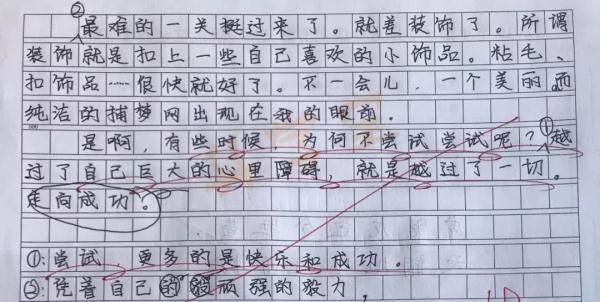 ②最难的一关挺过来了。就差装饰了。所谓
装饰就是扣上一些自己喜欢的小饰品。粘毛、
扣饰品……很快就好了。不一会儿,一个美丽而
纯洁的捕梦网出现在我的眼前。
是啊,有些时候,为何不尝试尝试呢?①越
过了自己巨大的心里障碍,就是越过了一切。
走向成功。
①:尝试,更多的是快乐和成功。
②:凭着自己的顽强的毅力